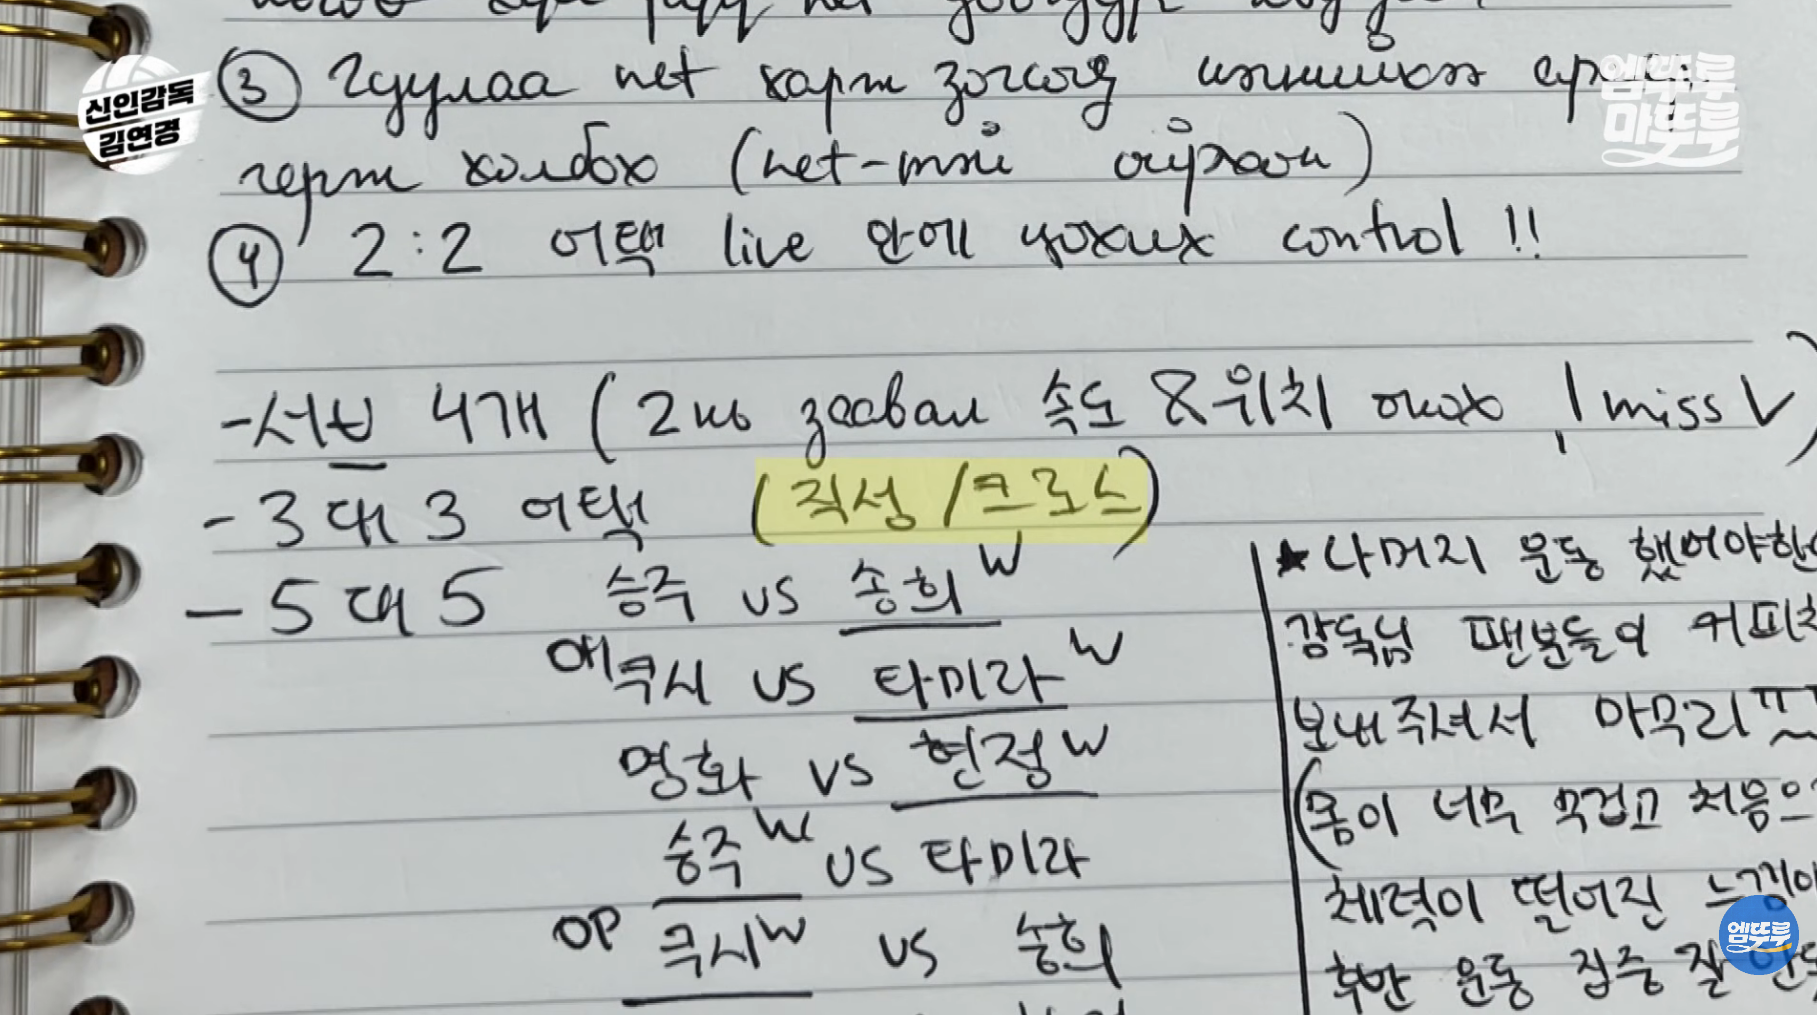 신인감독
김연경
엠뚜루
마뚜루
③ Гуулаа net харж зогсоод
гэрт холбох (net-тэй ойрхон)
④ 2:2 어택 live 안에 control !!
- 서브 4개 (2 нь заавал 속도 & 위치 онох, 1 miss V)
- 3대3 어택 (직성 / 크로스)
- 5대5 승주 vs 송희 W
애쿠시 vs 타미라 W
명화 vs 현정 W
승주 W vs 타미라
OP 쿠시 W vs 송희
★ 나머지 운동 했어야한
감독님 팬분들이 커피차
보내주셔서 마무리 ㅠ
(몸이 너무 무겁고 처음으
체력이 떨어진 느낌이
후반 운동 집중 잘
엠뚜루